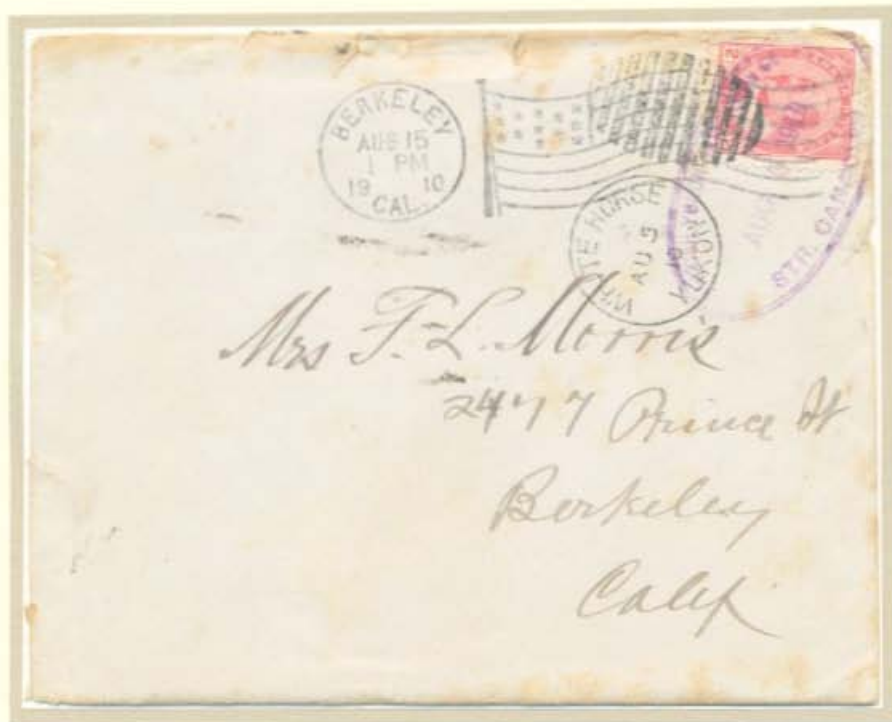 BERKELEY
AUG 15
1 PM
19 10
CAL.
2
WHITE HORSE
AU 9
10
YUKON
AUG
STR. CAN
Mrs F. L. Morris
2477 Prince St
Berkeley
Calif